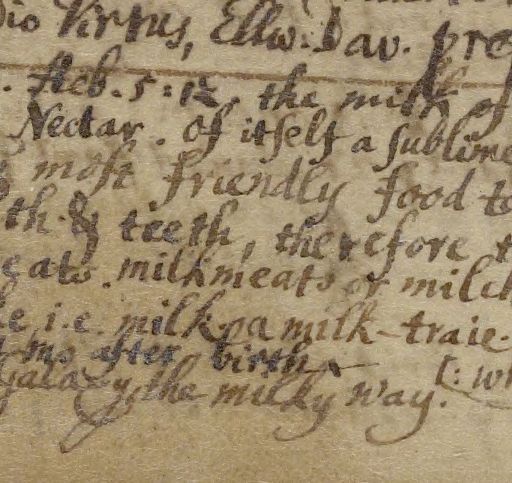 dio Virtus, Ellw. Dav. pref
. Heb. 5:12, the milk of
Nectar. of itself a sublime
most friendly food to
th & teeth, therefore t
eats. milkmeats or milch
i.e. milk. a milk-traie.
ms after birth
galaxy, the milky way. [: wh